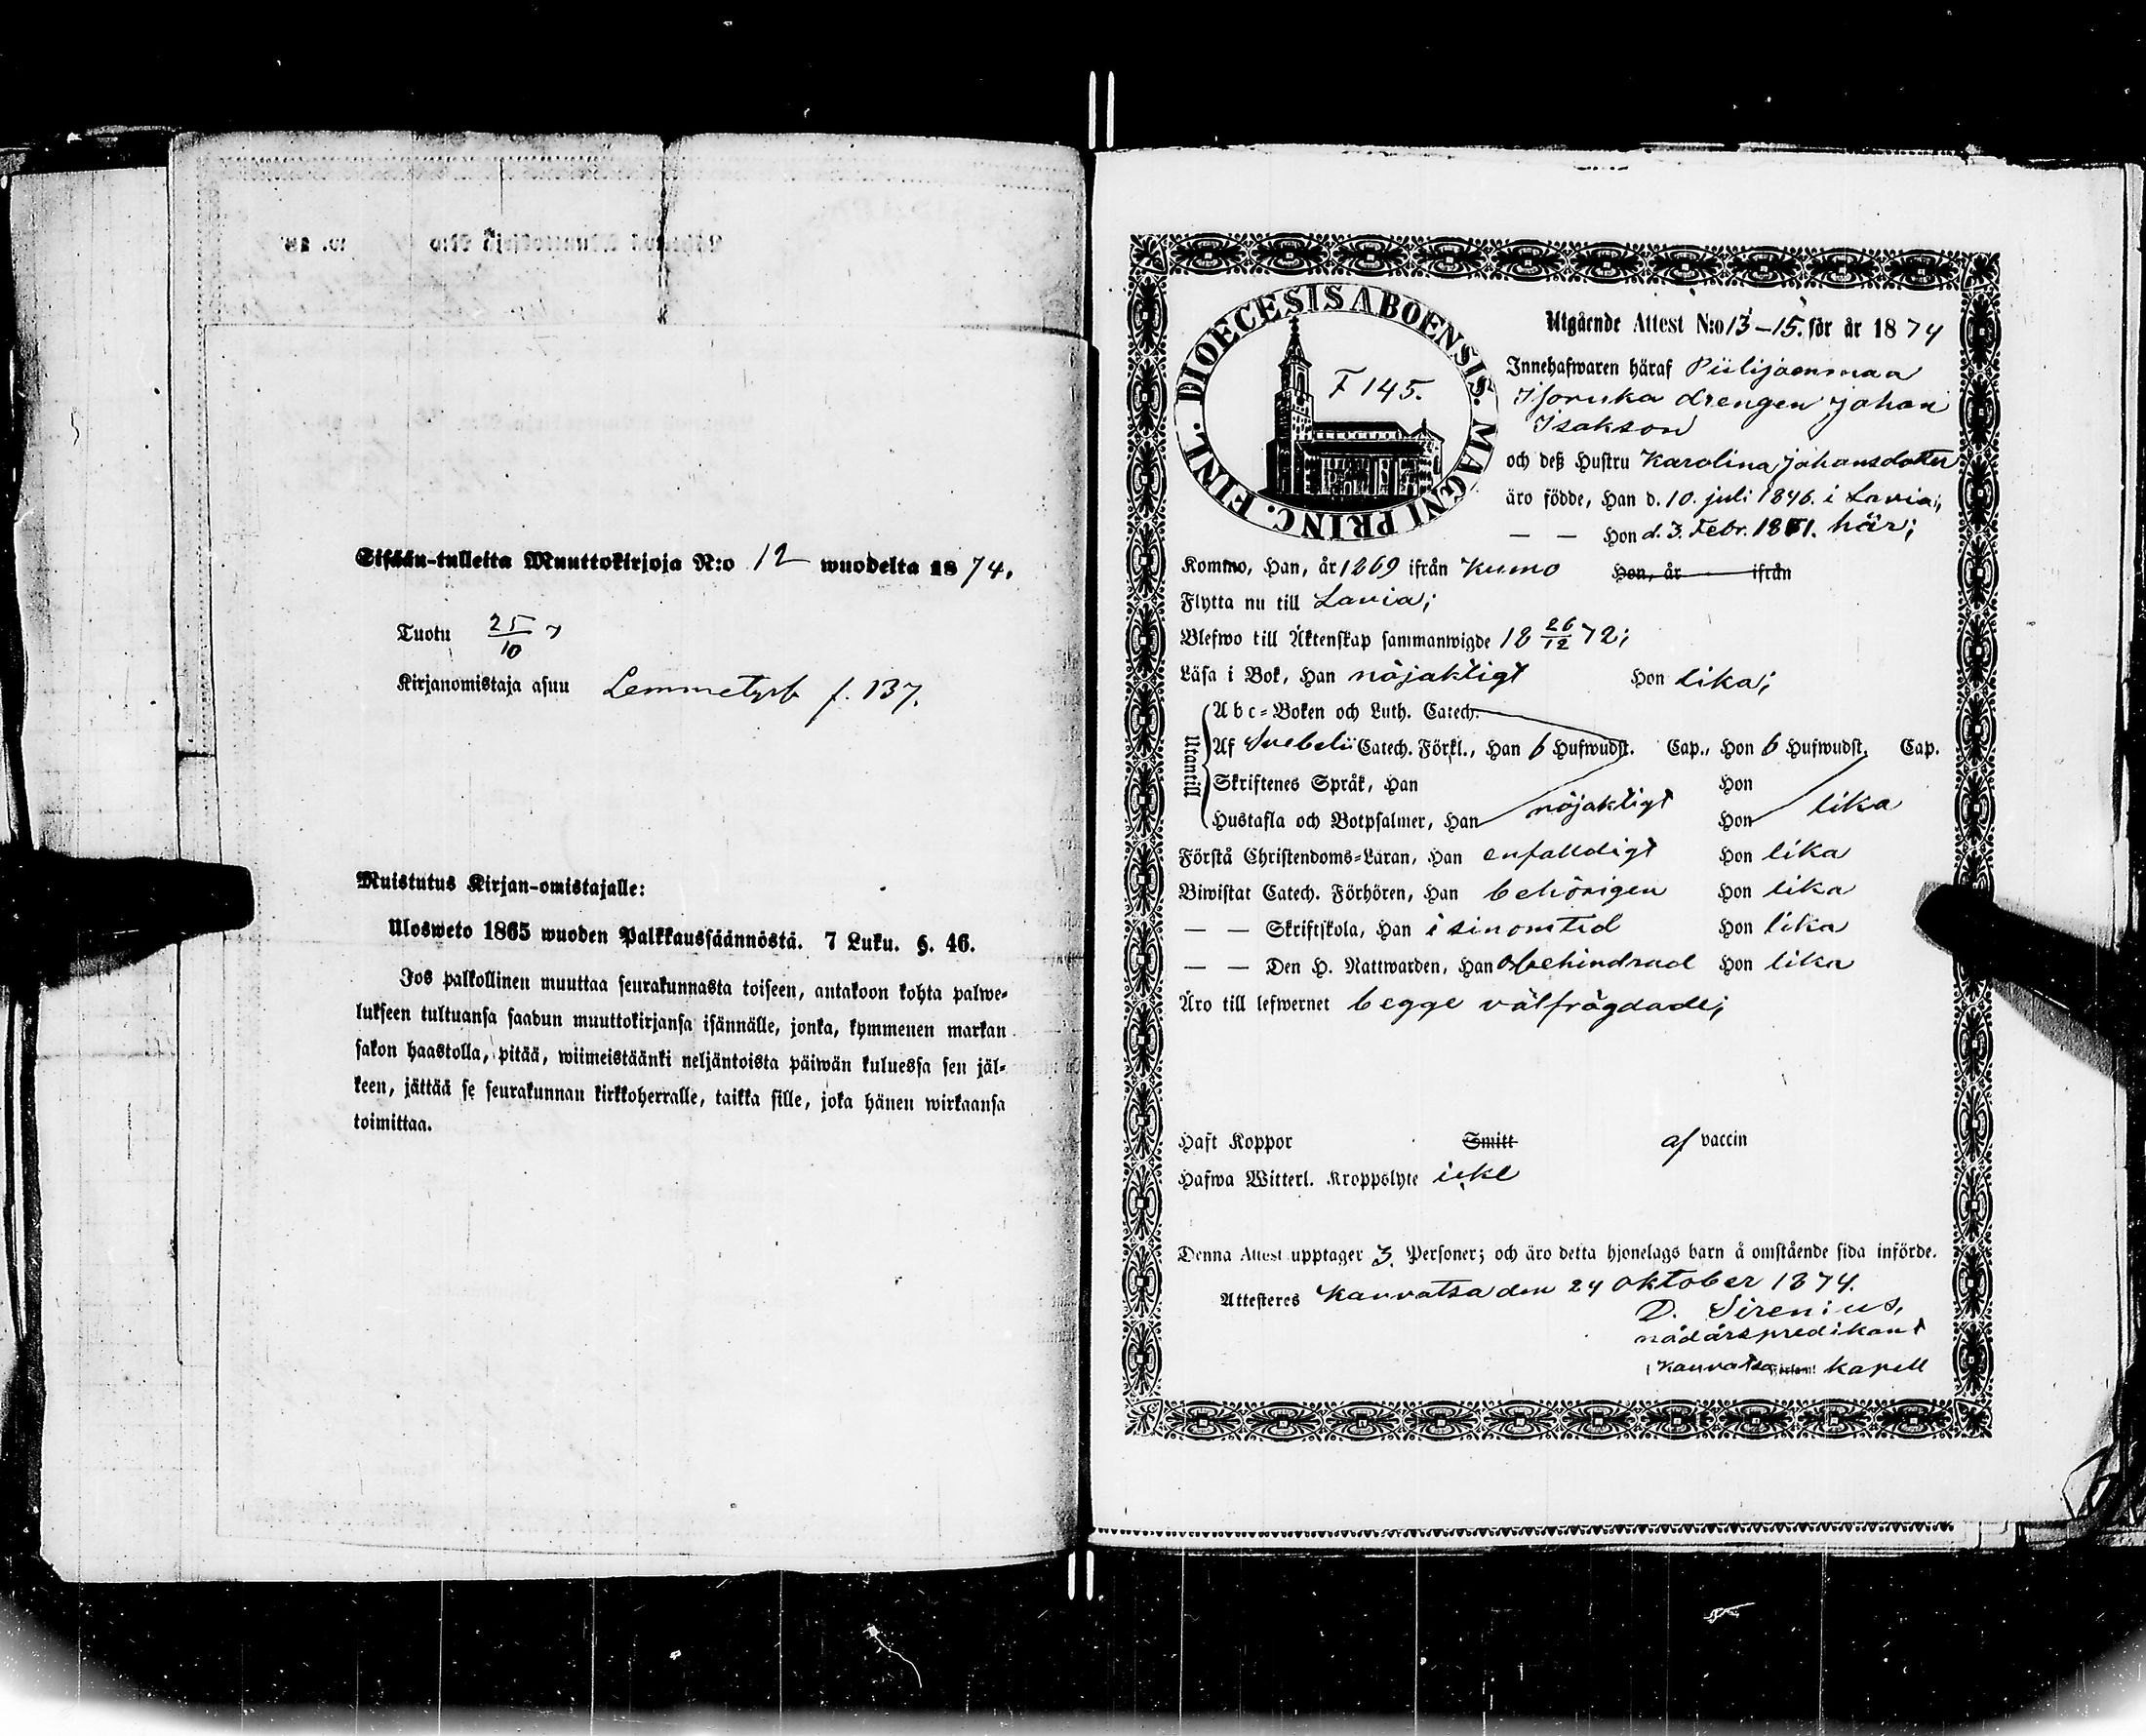 Sisään-tulleita Muuttokirjoja N:o 12 wuodelta 1874.
Tuotu 25/10
Kirjanomistaja asuu Lemmetyrb f. 137.
Muistutus Kirjan-omistajalle:
Ulosweto 1865 wuoden Palkkaussäännöstä. 7 Luku. §. 46.
Jos palkollinen muuttaa seurakunnasta toiseen, antakoon kohta palwe-
lukseen tultuansa saadun muuttokirjansa isännälle, jonka, kymmenen markan
sakon haastolla, pitää, wiimeistäänki neljäntoista päiwän kuluessa sen jäl-
keen, jättää se seurakunnan kirkkoherralle, taikka sille, joka hänen wirkaansa
toimittaa.
DIOECESIS ABOENSIS. MAGNI PRINC. FINL.
F 145.
Utgående Attest N:o 13-15. för år 1874
Innehafwaren häraf Piilijoenmaa
drengen Johan
Isakson
och deß Hustru Karolina Johansdotter
äro födde, Han d. 10. juli 1846. i Lavia;
— — Hon d. 3. Febr. 1851. här;
Kommo, Han, år 1869 ifrån Kumo Hon, år ifrån
Flytta nu till Lavia;
Blefwo till Äktenskap sammanwigde 18 26/12 72;
Läsa i Bok, Han nöjaktigt Hon lika;
Utantill
Abc-Boken och Luth. Catech.
Af Svebelii Catech. Förkl., Han 6 Hufwudst. Cap., Hon 6 Hufwudst. Cap.
Skriftenes Språk, Han Hon
Hustafla och Botpsalmer, Han nöjaktigt Hon lika
Förstå Christendoms-Läran, Han enfaldigt Hon lika
Biwistat Catech. Förhören, Han behörigen Hon lika
— — Skriftskola, Han i sinom tid Hon lika
— — Den H. Nattwarden, Han obehindrad Hon lika
Äro till lefwernet begge välfrägdade;
Haft Koppor Smitt af vaccin
Hafwa Witterl. Kroppslyte icke
Denna Attest upptager 3. Personer; och äro detta hjonelags barn å omstående sida införde.
Attesteres Kauvatsa den 24 oktober 1874.
D. Sirenius,
nådårspredikant
i Kauvatsa kapell